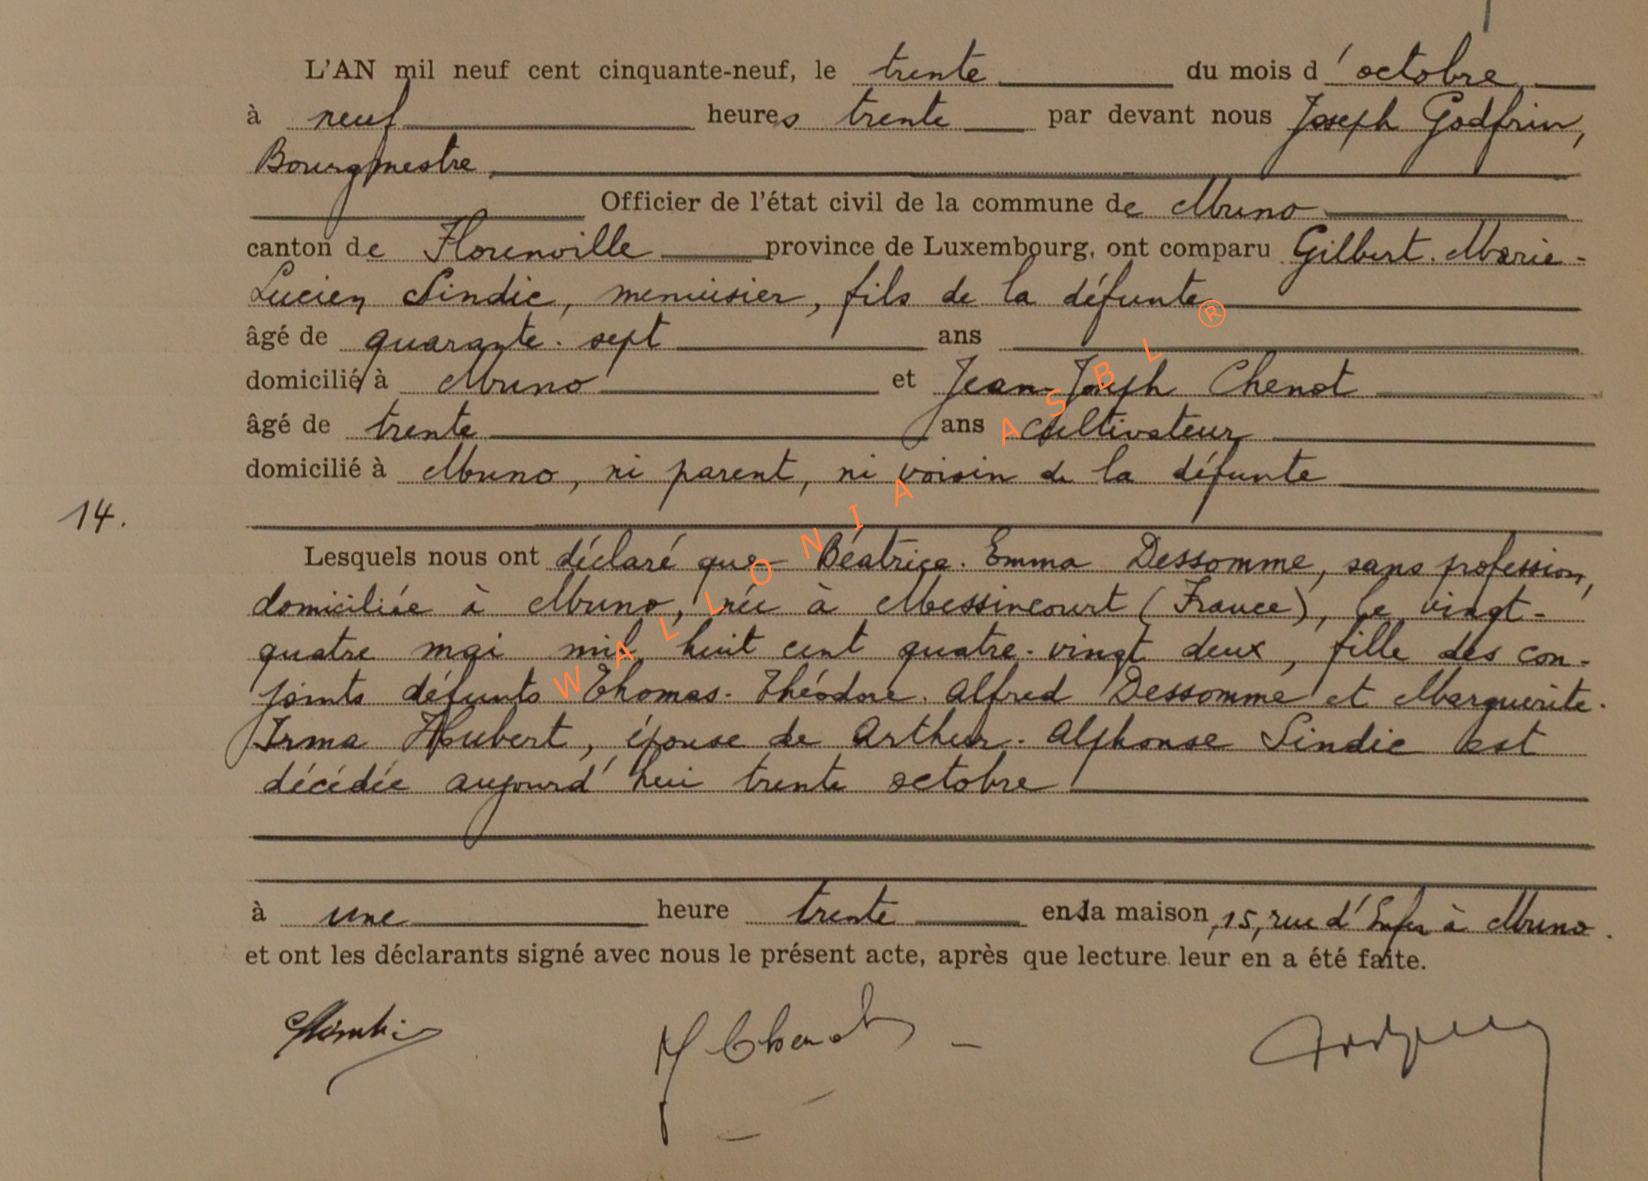 L'AN mil neuf cent cinquante-neuf, le trente du mois d'octobre
à neuf heures trente par devant nous Joseph Godfrin,
Bourgmestre,
Officier de l'état civil de la commune de Muno
canton de Florenville province de Luxembourg, ont comparu Gilbert-Marie-
Lucien Sindic, menuisier, fils de la défunte
âgé de quarante-sept ans
domicilié à Muno et Jean-Joseph Chenot
âgé de trente ans cultivateur
domicilié à Muno, ni parent, ni voisin de la défunte
14.
Lesquels nous ont déclaré que Béatrice-Emma Dessomme, sans profession,
domiciliée à Muno, née à Messincourt (France), le vingt-
quatre mai mil huit cent quatre-vingt deux, fille des con-
joints défunts Thomas-Théodore-Alfred Dessomme et Marguerite-
Irma Hubert, épouse de Arthur-Alphonse Sindic est
décédée aujourd'hui trente octobre
à une heure trente en sa maison, 15, rue d'Enfer à Muno.
et ont les déclarants signé avec nous le présent acte, après que lecture leur en a été faite.
Chenot
WALLONIA ASBL ®